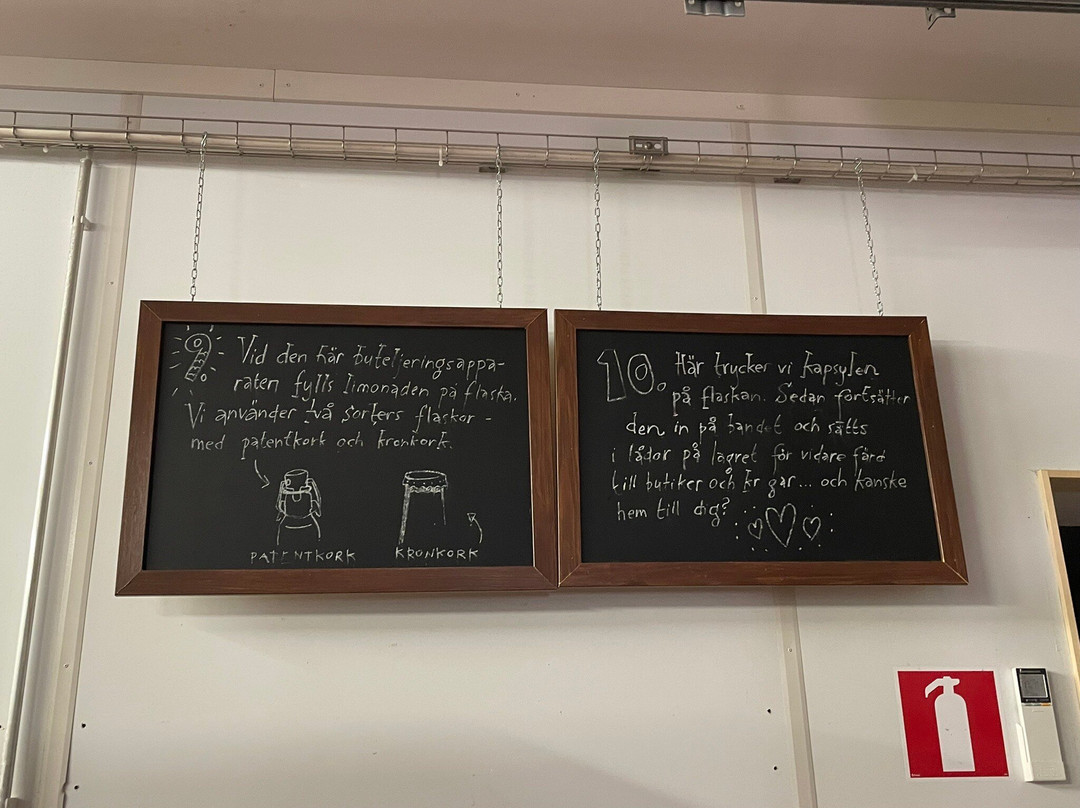 9.
Vid den här buteljeringsappa-
raten fylls limonaden på flaska.
Vi använder två sorters flaskor -
med patentkork och kronkork.
PATENTKORK
KRONKORK
10.
Här trycker vi kapsylen
på flaskan. Sedan fortsätter
den in på bandet och sätts
i lådor på lagret för vidare färd
till butiker och krogar... och kanske
hem till dig?